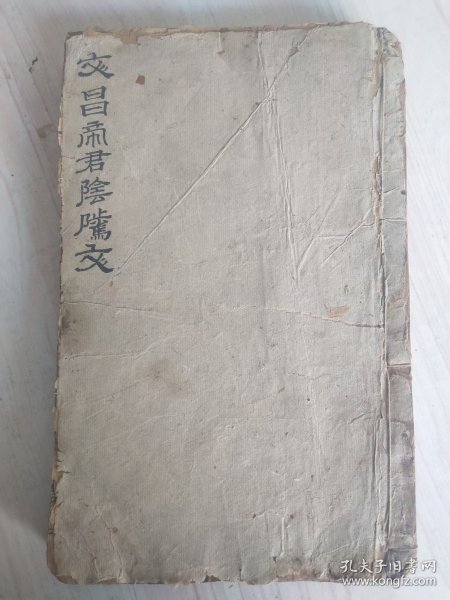 文昌帝君陰騭文
孔夫子旧书网
www.kongfz.com